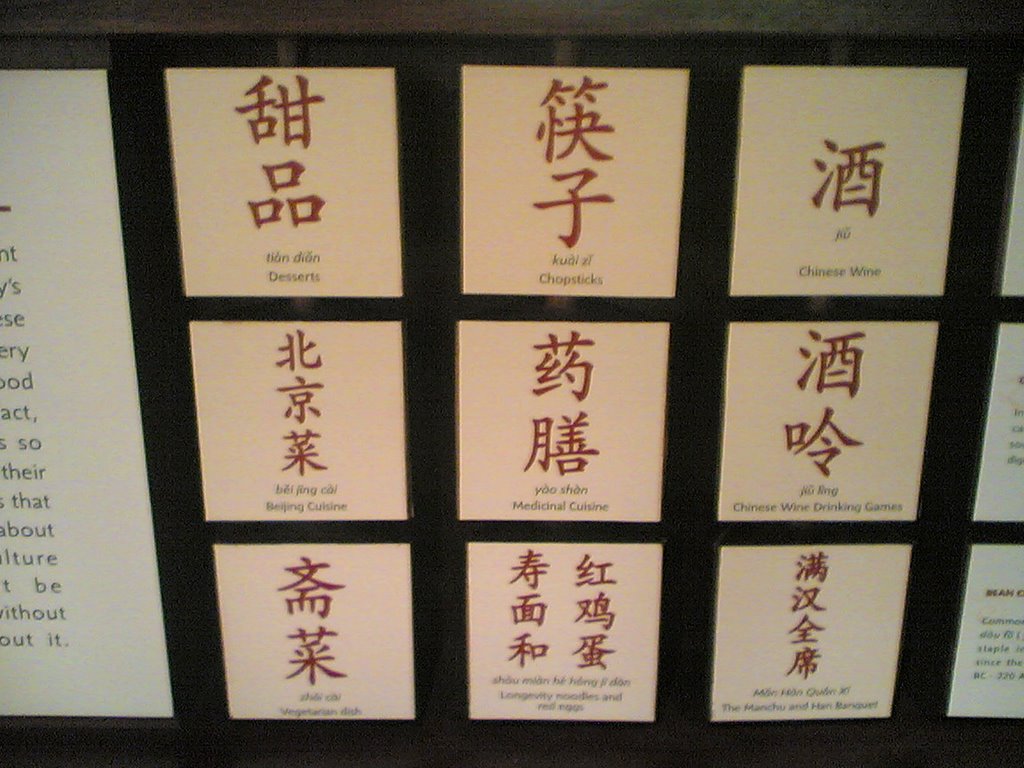 nt
y's
ese
ery
ood
act,
s so
their
s that
about
ulture
t be
without
out it.
甜
品
tián diǎn
Desserts
筷
子
kuài zǐ
Chopsticks
酒
jiǔ
Chinese Wine
北
京
菜
běi jīng cài
Beijing Cuisine
药
膳
yào shàn
Medicinal Cuisine
酒
呤
jiǔ lìng
Chinese Wine Drinking Games
斋
菜
zhāi cài
Vegetarian dish
寿 红
面 鸡
和 蛋
shòu miàn hé hóng jī dàn
Longevity noodles and
red eggs
满
汉
全
席
Mǎn Hàn Quán Xí
The Manchu and Han Banquet
BEAN
Common
dòu fǔ
staple in
since the
BC - 220 A